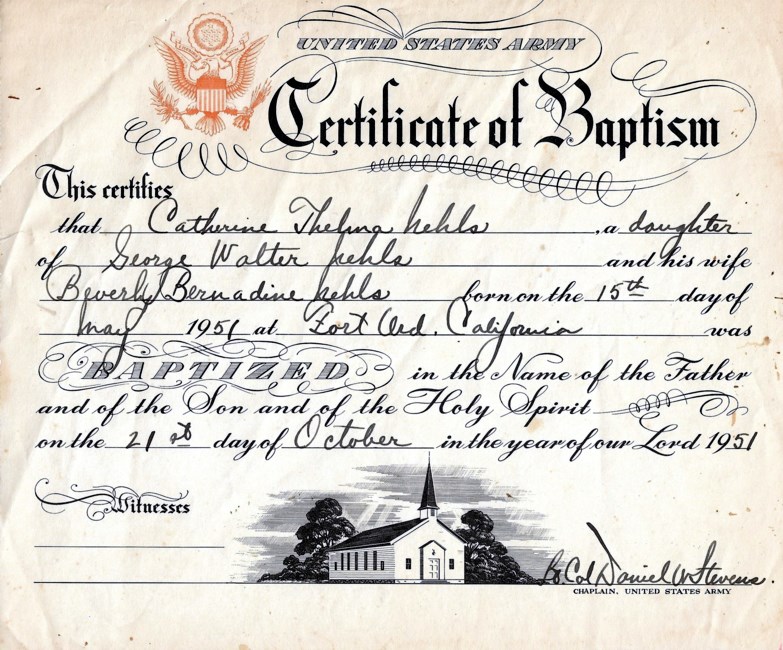 UNITED STATES ARMY
Certificate of Baptism
This certifies
that Catherine Thelma Nehls, a daughter
of George Walter Nehls and his wife
Beverly Bernadine Nehls born on the 15th day of
May 1951 at Fort Ord, California was
BAPTIZED in the Name of the Father
and of the Son and of the Holy Spirit
on the 21st day of October in the year of our Lord 1951
Witnesses
Lt. Col Daniel W Stevens.
CHAPLAIN, UNITED STATES ARMY